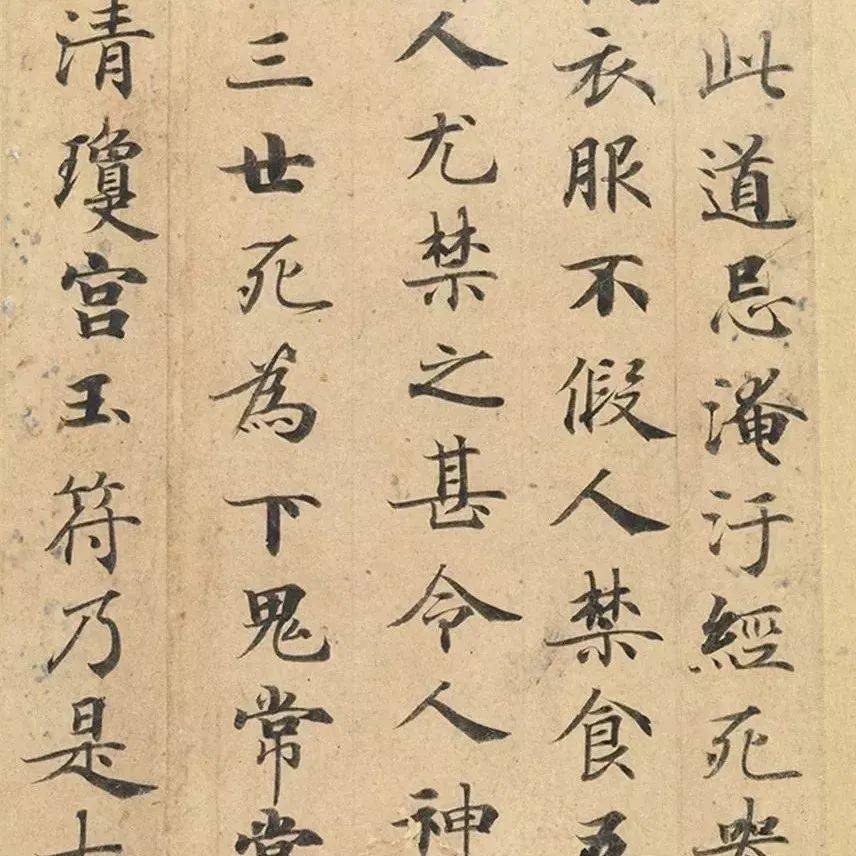 此道忌淹汙經死
衣服不假人禁食
人尤禁之甚令人神
三世死為下鬼常
清瓊宮玉符乃是